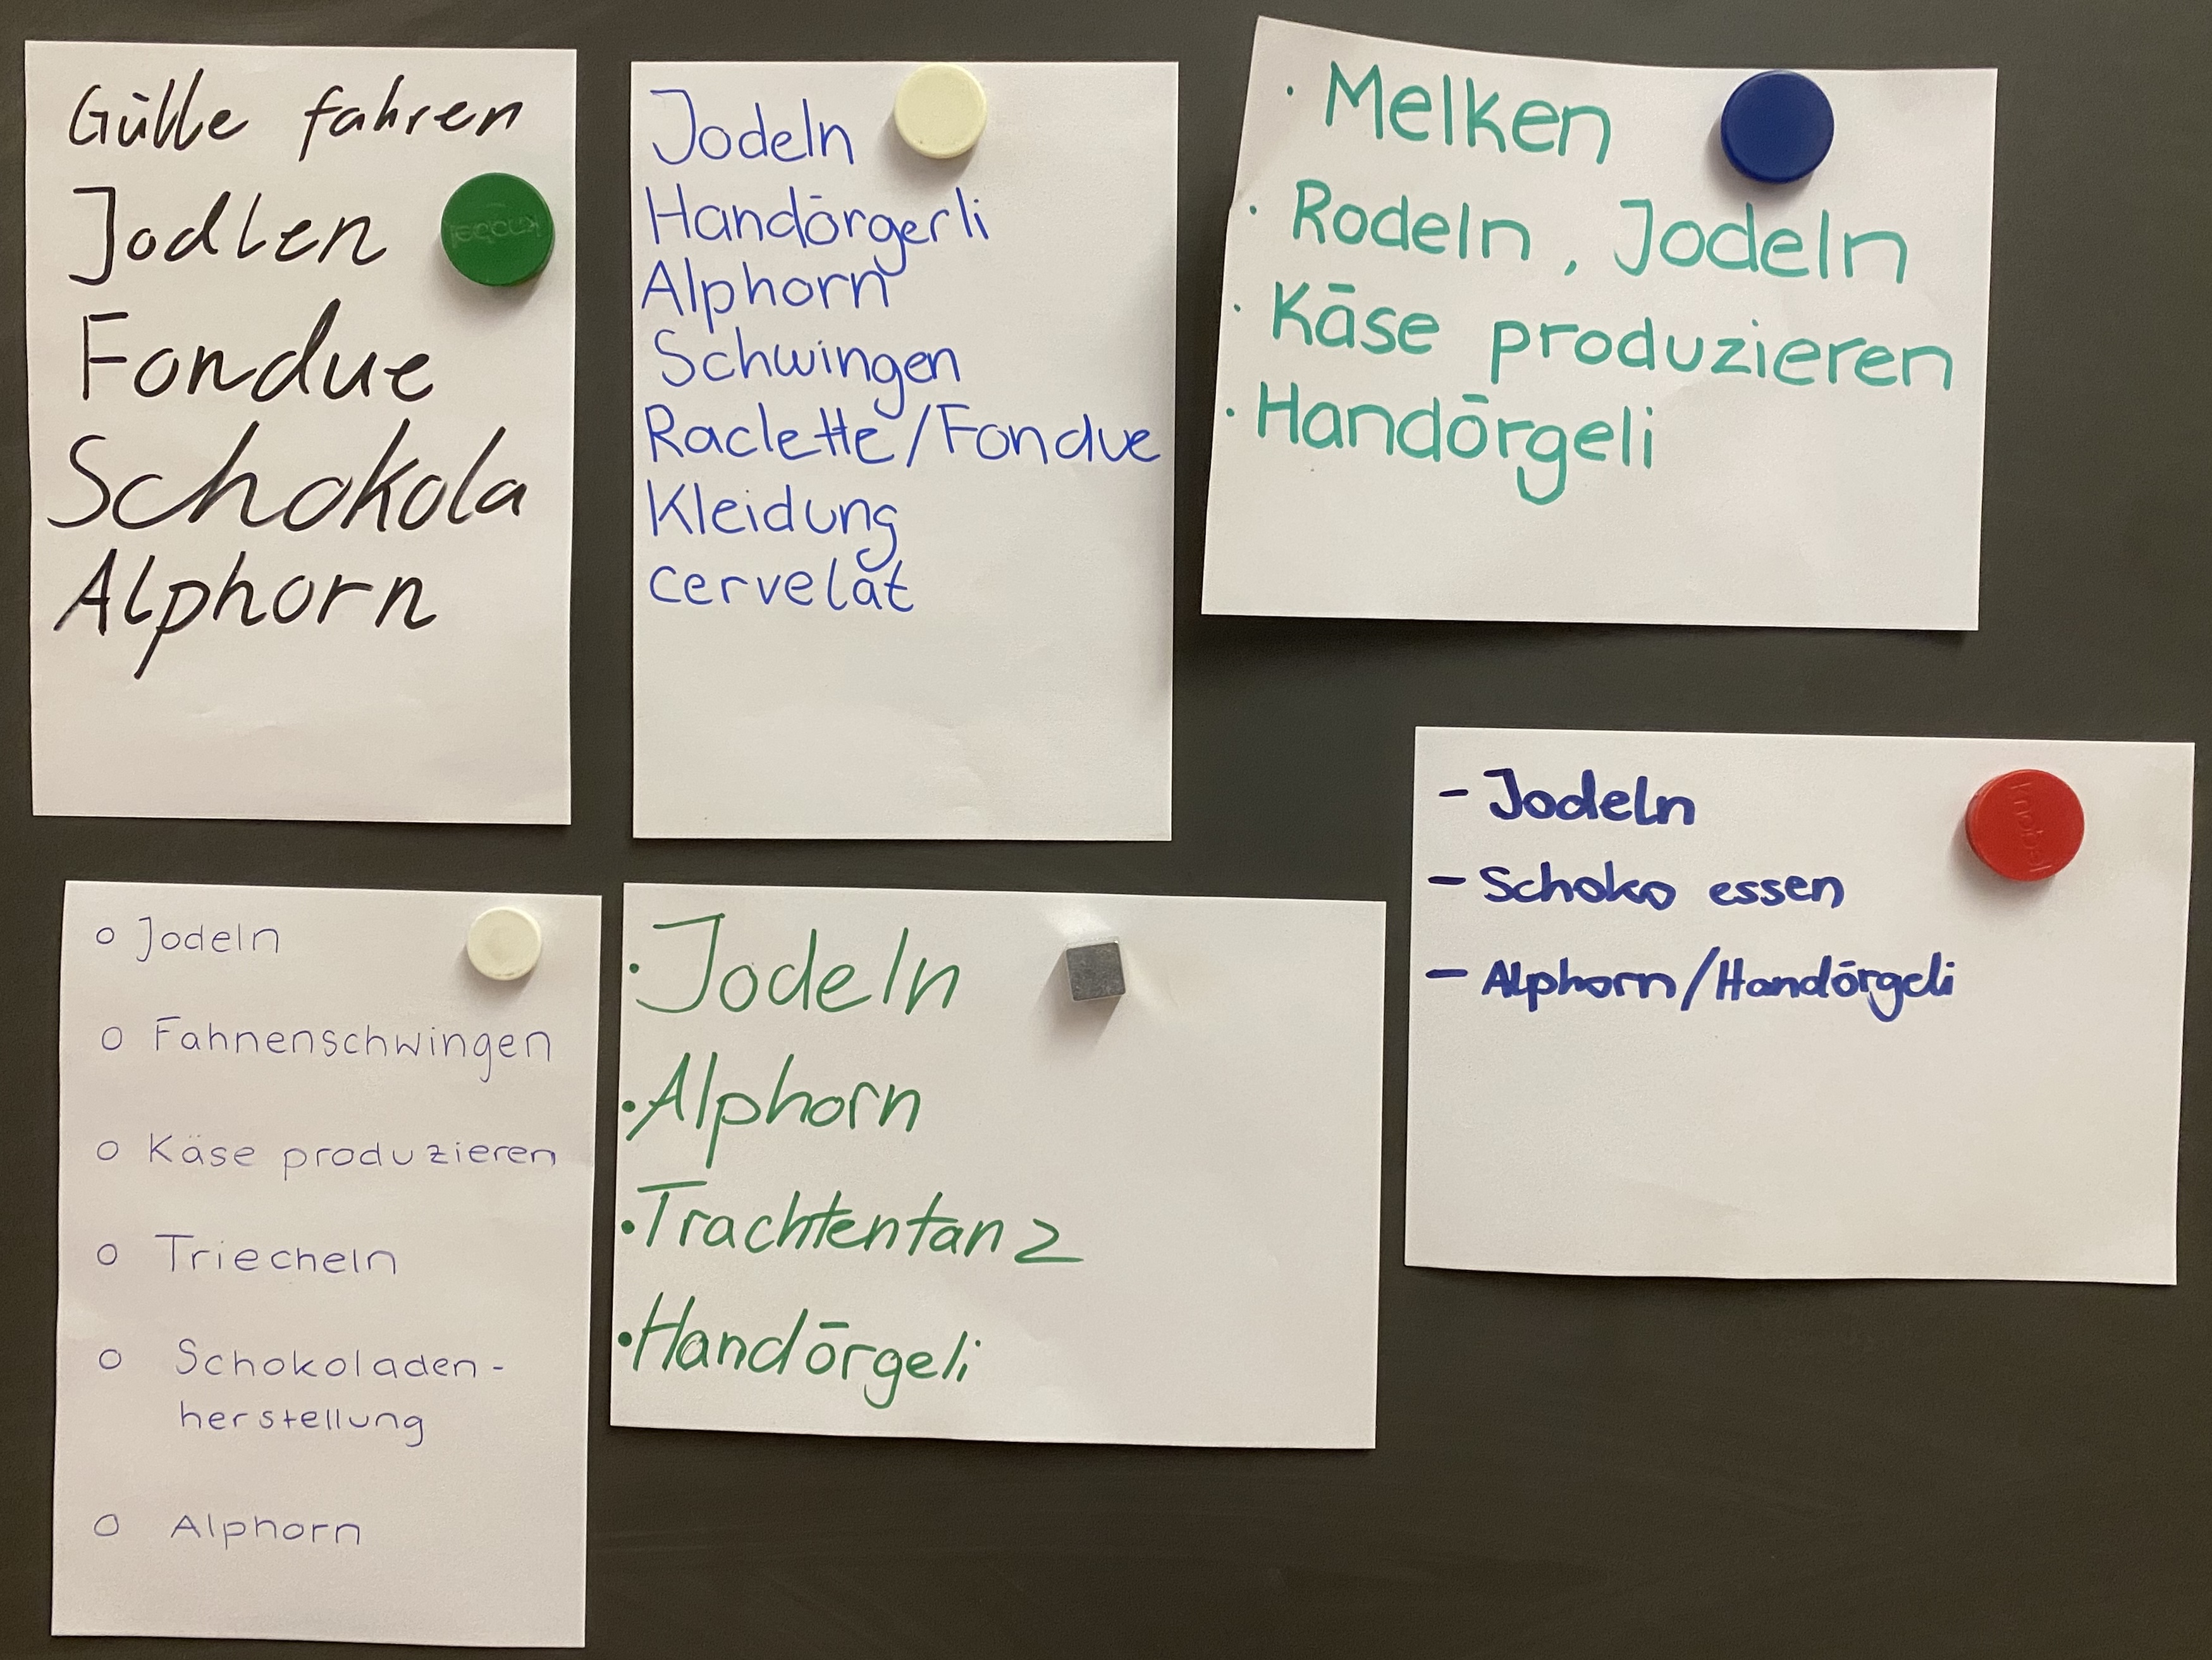 Gülle fahren
Jodlen
Fondue
Schokola
Alphorn
Jodeln
Handörgerli
Alphorn
Schwingen
Raclette/Fondue
Kleidung
cervelat
· Melken
· Rodeln, Jodeln
· Käse produzieren
· Handörgeli
- Jodeln
- Schoko essen
- Alphorn/Handörgeli
o Jodeln
o Fahnenschwingen
o Käse produzieren
o Triecheln
o Schokoladen-
herstellung
o Alphorn
· Jodeln
· Alphorn
· Trachtentanz
· Handörgeli
knobel
knobel